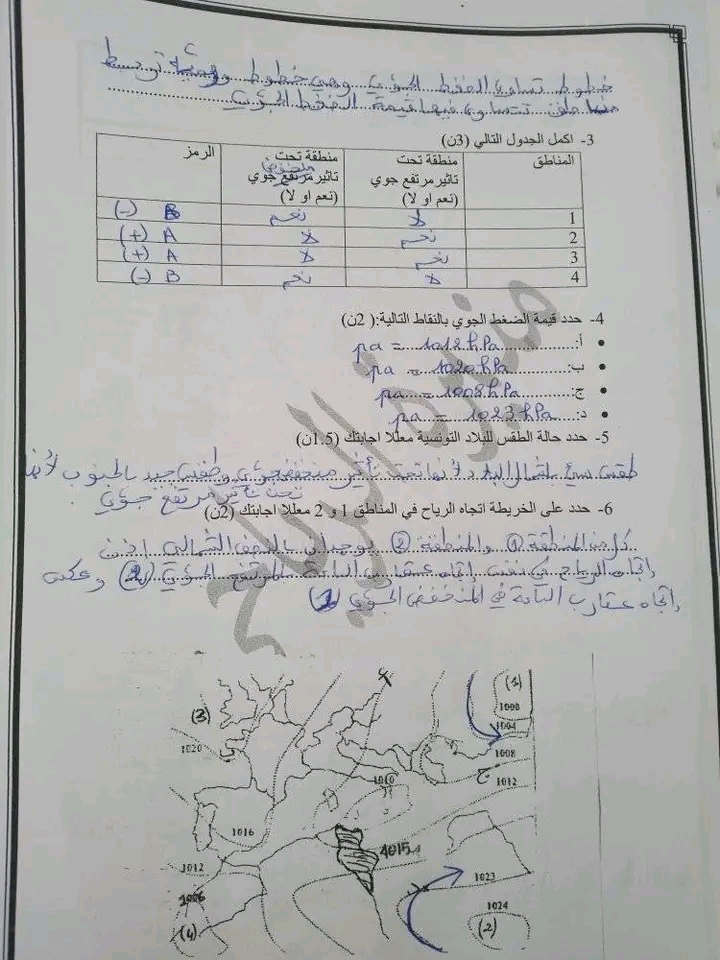 خطوط تساوي الضغط الجوي وهي خطوط وهمية تربط
مناطق تتساوى فيها قيمة الضغط الجوي
3- اكمل الجدول التالي (3ن)
المناطق | منطقة تحت تاثير مرتفع جوي (نعم او لا) | منطقة تحت تاثير مرتفع جوي منخفض (نعم او لا) | الرمز
1 | لا | نعم | B (-)
2 | نعم | لا | A (+)
3 | نعم | لا | A (+)
4 | لا | نعم | B (-)
4- حدد قيمة الضغط الجوي بالنقاط التالية:( 2ن)
أ: pa = 1012 hPa
ب: pa = 1020 hPa
ج: pa = 1008 hPa
د: pa = 1023 hPa
5- حدد حالة الطقس للبلاد التونسية معللا اجابتك (1.5ن)
طقس سيئ بشمال البلاد لأنها تحت تأثير منخفض جوي وطقس جيد بالجنوب لأنها
تحت تأثير مرتفع جوي
6- حدد على الخريطة اتجاه الرياح في المناطق 1 و 2 معللا اجابتك (2ن)
كل من المنطقة 1 والمنطقة 2 يوجدان بالنصف الشمالي إذن
إتجاه الرياح في نفس إتجاه عقارب الساعة للمرتفع الجوي (2) وعكس
إتجاه عقارب الساعة في المنخفض الجوي (1)
منيرة الرياح
(1)
1000
(3)
1004
1020
1008
ج
1010
1012
1016
1015
1012
1023
1006
1024
(4)
(2)